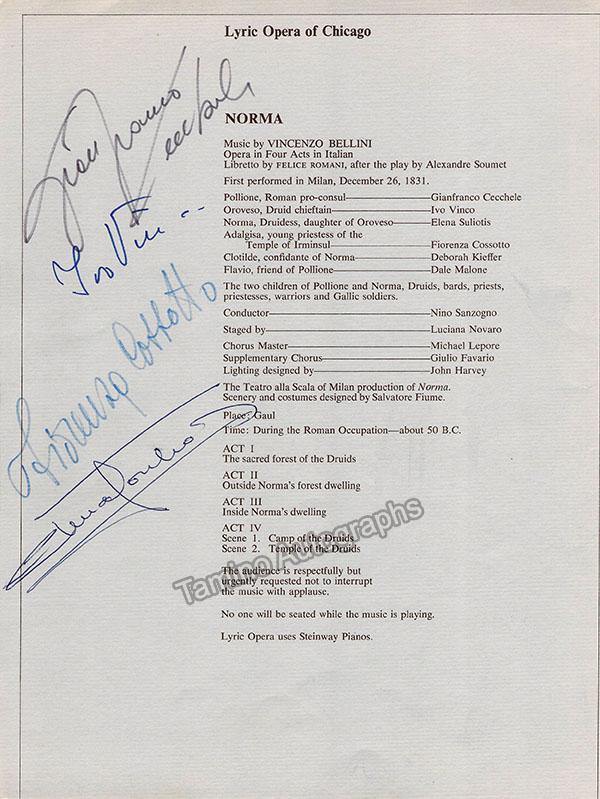 Lyric Opera of Chicago
NORMA
Music by VINCENZO BELLINI
Opera in Four Acts in Italian
Libretto by FELICE ROMANI, after the play by Alexandre Soumet
First performed in Milan, December 26, 1831.
Pollione, Roman pro-consul—Gianfranco Cecchele
Oroveso, Druid chieftain—Ivo Vinco
Norma, Druidess, daughter of Oroveso—Elena Suliotis
Adalgisa, young priestess of the
Temple of Irminsul—Fiorenza Cossotto
Clotilde, confidante of Norma—Deborah Kieffer
Flavio, friend of Pollione—Dale Malone
The two children of Pollione and Norma, Druids, bards, priests,
priestesses, warriors and Gallic soldiers.
Conductor—Nino Sanzogno
Staged by—Luciana Novaro
Chorus Master—Michael Lepore
Supplementary Chorus—Giulio Favario
Lighting designed by—John Harvey
The Teatro alla Scala of Milan production of Norma.
Scenery and costumes designed by Salvatore Fiume.
Place: Gaul
Time: During the Roman Occupation—about 50 B.C.
ACT I
The sacred forest of the Druids
ACT II
Outside Norma's forest dwelling
ACT III
Inside Norma's dwelling
ACT IV
Scene 1. Camp of the Druids
Scene 2. Temple of the Druids
The audience is respectfully but
urgently requested not to interrupt
the music with applause.
No one will be seated while the music is playing.
Lyric Opera uses Steinway Pianos.
Gianfranco
Cecchele
Ivo Vinco
Fiorenza Cossotto
Elena Souliotis
Tamino Autographs